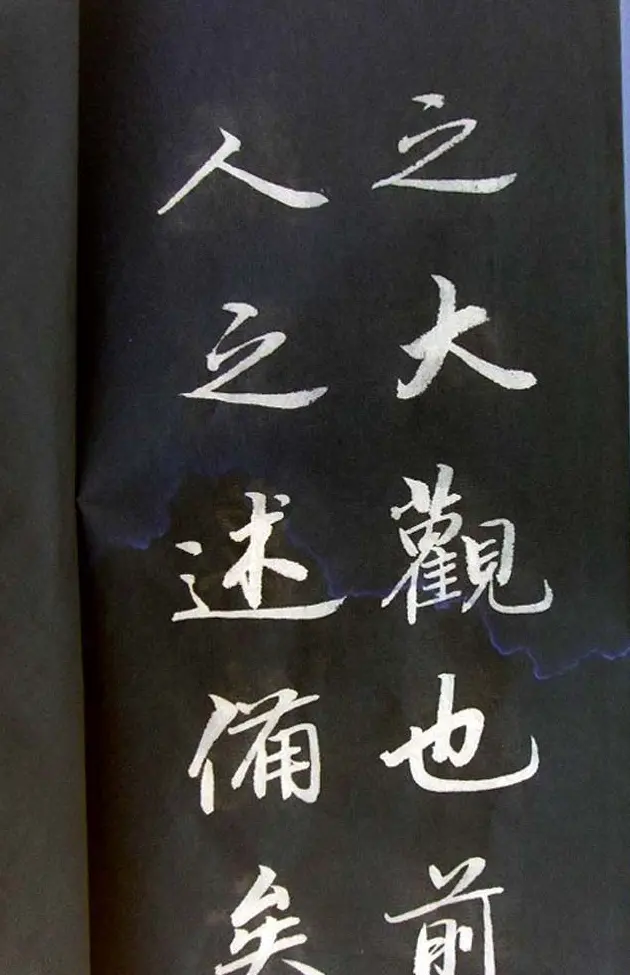 之大觀也前
人之述備矣